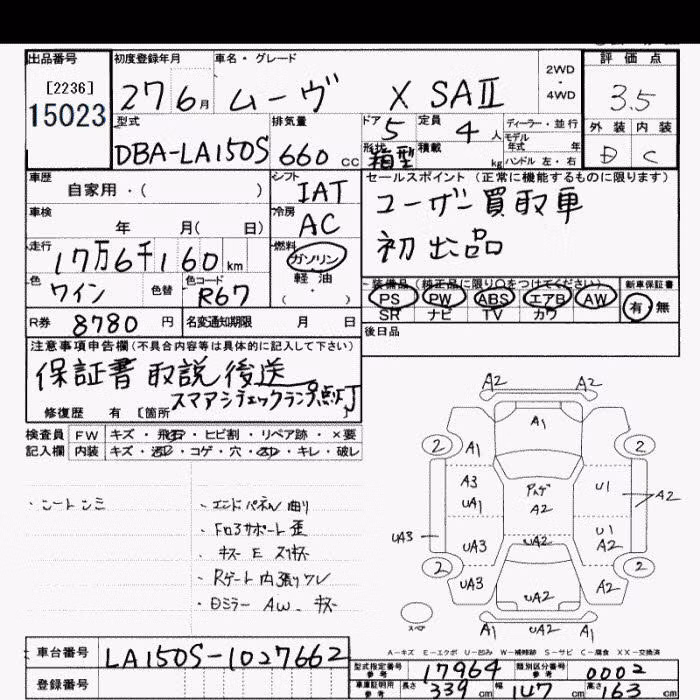 出品番号
[2236]
15023
初度登録年月
27 6月
車名・グレード
ムーヴ X SAⅡ
2WD
・
4WD
評価点
3.5
外装 内装
D C
型式
DBA-LA150S
排気量
660 cc
ドア
5
定員
4 人
形状
箱型
積載
kg
ディーラー・並行
モデル
年式 年
ハンドル 左・右
車歴
自家用・( )
シフト
IAT
車検
年 月( 日)
冷房
AC
走行
17万6千160 km
燃料
ガソリン
軽油
( ・ )
色
ワイン
色替
色コード
R67
R券
8780 円
名変通知期限 月 日
セールスポイント(正常に機能するものに限ります)
ユーザー買取車
初出品
装備品(純正品に限り〇をつけてください)
新車保証書
PS PW ABS エアB AW
SR ナビ TV カワ
有・無
後日品
注意事項申告欄(不具合内容等は具体的に記入して下さい)
保証書 取説 後送
スマアシチェックランプ点灯
修復歴 有 [箇所
検査員
記入欄
FW キズ・飛石・ヒビ割・リペア跡・×要
内装 キズ・・コゲ・穴・・キレ・破レ
・シートシミ
・エンドパネル曲り
・Fロアサポート歪
・キズ E スリキズ
・Rゲート内張りワレ
・Dミラー AW. キズ
A2 A2
A1
2 2
A1
A3
UA1
A2
U1
A2
UA3
UA3
UA2
U1
A2
2 2
UA3
UA2
A2
A1 A2
スペア
A-キズ E-エクボ U-凹み W-補修跡 S-サビ C-腐食 XX-交換済
車台番号
LA150S-1027662
登録番号
型式指定番号
参考
17964
類別区分番号
参考
0002
車庫証明用
参考
長さ
339 cm
幅
147 cm
高さ
163 cm